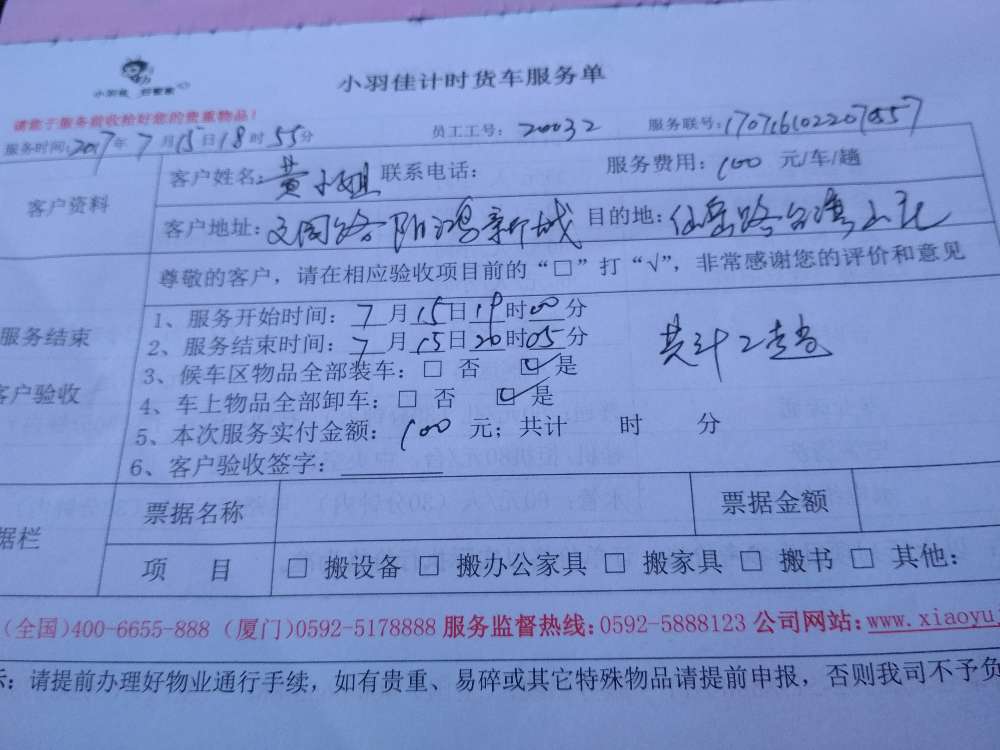 小羽佳 好管家
小羽佳计时货车服务单
请您于服务前收拾好您的贵重物品!
服务时间:2017年7月15日18时55分 员工工号: 20032 服务联号:170716102207057
客户资料
客户姓名:黄小姐 联系电话: 服务费用: 100 元/车/趟
客户地址:文园路阳鸿新城 目的地:仙岳路台湾山庄
尊敬的客户,请在相应验收项目前的“□”打“√”,非常感谢您的评价和意见
服务结束
客户验收
1、服务开始时间: 7 月 15 日 19 时 00 分
2、服务结束时间: 7 月 15 日 20 时 05 分
共计2趟
3、候车区物品全部装车: □ 否 ☑ 是
4、车上物品全部卸车: □ 否 ☑ 是
5、本次服务实付金额: 100 元; 共计 时 分
6、客户验收签字:
据栏
票据名称 票据金额
项 目 □ 搬设备 □ 搬办公家具 □ 搬家具 □ 搬书 □ 其他:
(全国)400-6655-888 (厦门)0592-5178888 服务监督热线:0592-5888123 公司网站:www.xiaoyu
示: 请提前办理好物业通行手续, 如有贵重、易碎或其它特殊物品请提前申报, 否则我司不予负